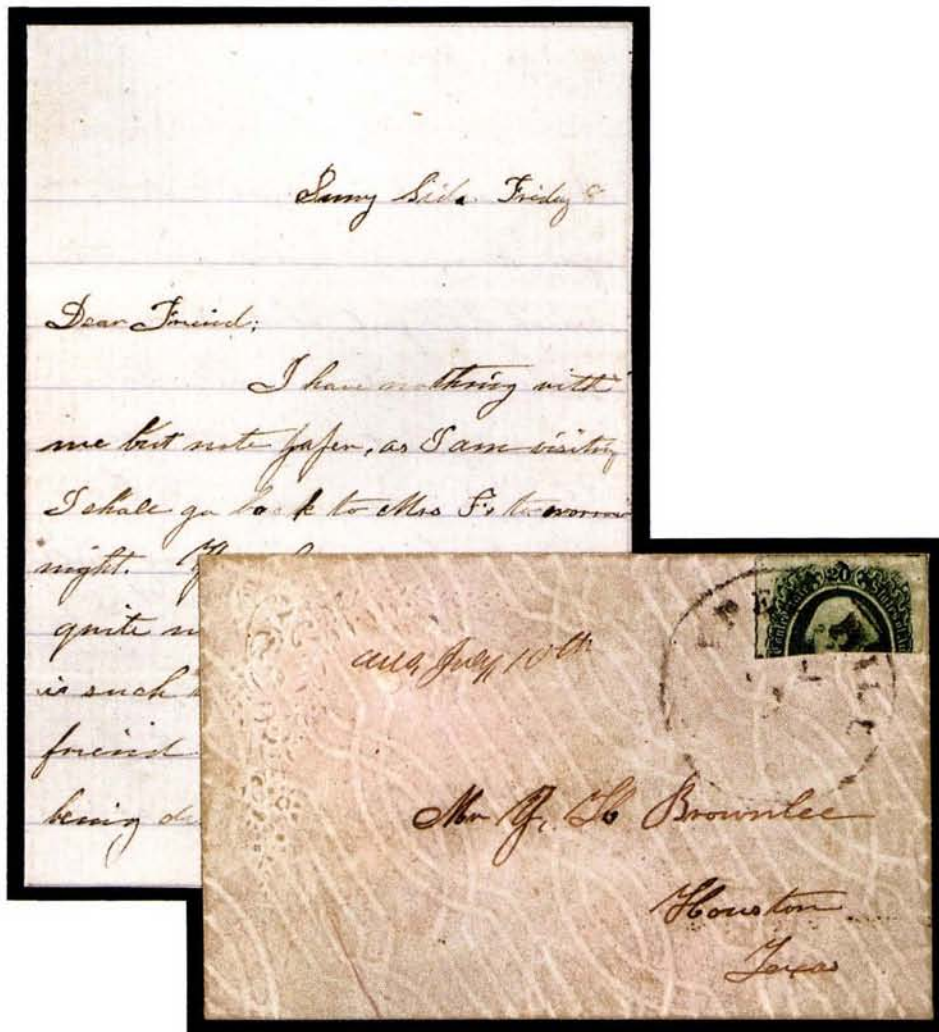 Sunny Side Friday
Dear Friend;
I have nothing with
me but note paper, as I am visiting
I shall go back to Mrs F's tomorrow
night.
quite
is such
friend
being
July 10th
20
Confederate States of
Mr Brownlee
Houston
Texas